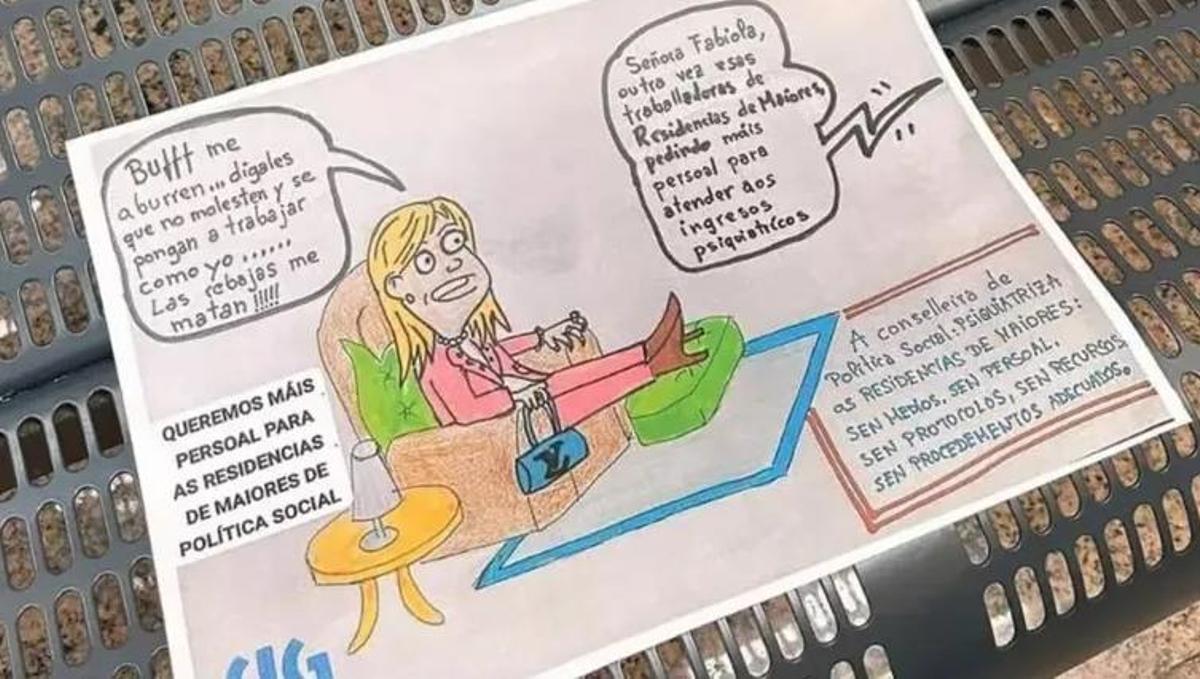 Bufff me
aburren... digales
que no molesten y se
pongan a trabajar
como yo ......
Las rebajas me
matan !!!!!
Señora Fabiola,
outra vez esas
traballadoras de
Residencias de Maiores,
pedindo máis
persoal para
atender aos
ingresos
psiquiatricos
QUEREMOS MÁIS
PERSOAL PARA
AS RESIDENCIAS
DE MAIORES DE
POLÍTICA SOCIAL
A conselleira de
Política Social, PSIQUIATRIZA
as RESIDENCIAS DE MAIORES:
SEN MEDIOS, SEN PERSOAL,
SEN PROTOCOLOS, SEN RECURSOS
SEN PROCEDEMENTOS ADECUADOS.
LV
CIG